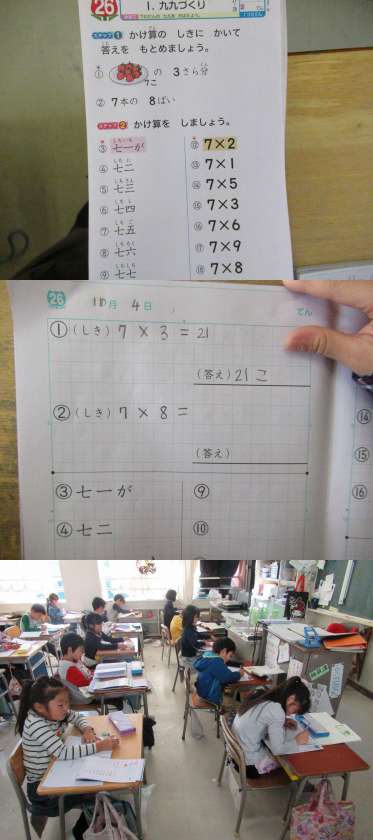 26
1. 九九づくり
ステップ1 かけ算の しきに かいて
答えを もとめましょう。
① の 3さら分
7こ
② 7本の 8ばい
ステップ2 かけ算を しましょう。
③ 七一が
④ 七二
⑤ 七三
⑥ 七四
⑦ 七五
⑧ 七六
⑨ 七七
⑫ 7×2
⑬ 7×1
⑭ 7×5
⑮ 7×3
⑯ 7×6
⑰ 7×9
⑱ 7×8
26 11月 4日
てん
① (しき) 7 × 3 = 21
(答え) 21 こ
② (しき) 7 × 8 =
(答え)
③ 七一が
④ 七二
⑨
⑩
⑭
⑮
⑯